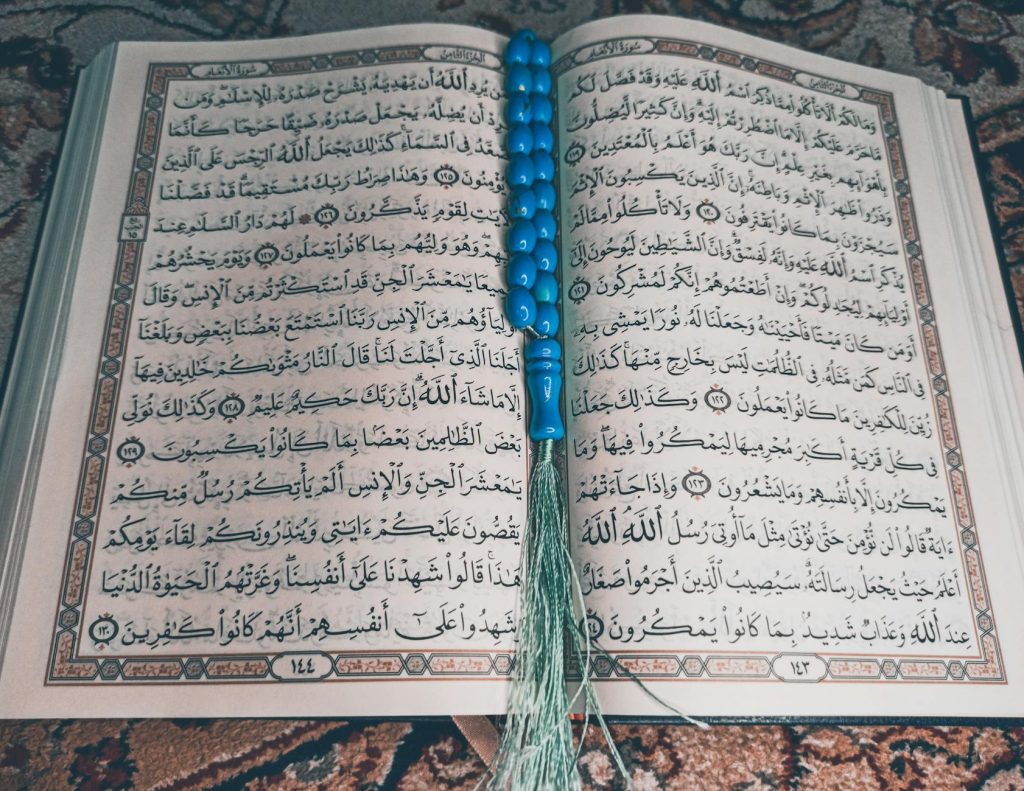 سُورَةُ الأَنْعَامِ
الجُزْءُ الثَّامِنُ
وَمَا لَكُمْ أَلَّا تَأْكُلُوا۟ مِمَّا ذُكِرَ ٱسْمُ ٱللَّهِ عَلَيْهِ وَقَدْ فَصَّلَ لَكُم
مَّا حَرَّمَ عَلَيْكُمْ إِلَّا مَا ٱضْطُرِرْتُمْ إِلَيْهِ ۗ وَإِنَّ كَثِيرًا لَّيُضِلُّونَ
بِأَهْوَآئِهِم بِغَيْرِ عِلْمٍ ۗ إِنَّ رَبَّكَ هُوَ أَعْلَمُ بِٱلْمُعْتَدِينَ ١١٩
وَذَرُوا۟ ظَٰهِرَ ٱلْإِثْمِ وَبَاطِنَهُۥٓ ۚ إِنَّ ٱلَّذِينَ يَكْسِبُونَ ٱلْإِثْمَ
سَيُجْزَوْنَ بِمَا كَانُوا۟ يَقْتَرِفُونَ ١٢٠ وَلَا تَأْكُلُوا۟ مِمَّا لَمْ
يُذْكَرِ ٱسْمُ ٱللَّهِ عَلَيْهِ وَإِنَّهُۥ لَفِسْقٌ ۗ وَإِنَّ ٱلشَّيَٰطِينَ لَيُوحُونَ إِلَىٰٓ
أَوْلِيَآئِهِمْ لِيُجَٰدِلُوكُمْ ۖ وَإِنْ أَطَعْتُمُوهُمْ إِنَّكُمْ لَمُشْرِكُونَ ١٢١
أَوَمَن كَانَ مَيْتًا فَأَحْيَيْنَٰهُ وَجَعَلْنَا لَهُۥ نُورًا يَمْشِى بِهِۦ
فِى ٱلنَّاسِ كَمَن مَّثَلُهُۥ فِى ٱلظُّلُمَٰتِ لَيْسَ بِخَارِجٍ مِّنْهَا ۚ كَذَٰلِكَ
زُيِّنَ لِلْكَٰفِرِينَ مَا كَانُوا۟ يَعْمَلُونَ ١٢٢ وَكَذَٰلِكَ جَعَلْنَا
فِى كُلِّ قَرْيَةٍ أَكَٰبِرَ مُجْرِمِيهَا لِيَمْكُرُوا۟ فِيهَا ۖ وَمَا
يَمْكُرُونَ إِلَّا بِأَنفُسِهِمْ وَمَا يَشْعُرُونَ ١٢٣ وَإِذَا جَآءَتْهُمْ
ءَايَةٌ قَالُوا۟ لَن نُّؤْمِنَ حَتَّىٰ نُؤْتَىٰ مِثْلَ مَآ أُوتِىَ رُسُلُ ٱللَّهِ ۘ ٱللَّهُ
أَعْلَمُ حَيْثُ يَجْعَلُ رِسَالَتَهُۥ ۗ سَيُصِيبُ ٱلَّذِينَ أَجْرَمُوا۟ صَغَارٌ
عِندَ ٱللَّهِ وَعَذَابٌ شَدِيدٌۢ بِمَا كَانُوا۟ يَمْكُرُونَ
١٤٣
الجُزْءُ الثَّامِنُ
سُورَةُ الأَنْعَامِ
يُرِدِ ٱللَّهُ أَن يَهْدِيَهُۥ يَشْرَحْ صَدْرَهُۥ لِلْإِسْلَٰمِ ۖ وَمَن
أَن يُضِلَّهُۥ يَجْعَلْ صَدْرَهُۥ ضَيِّقًا حَرَجًا كَأَنَّمَا
فِى ٱلسَّمَآءِ ۚ كَذَٰلِكَ يَجْعَلُ ٱللَّهُ ٱلرِّجْسَ عَلَى ٱلَّذِينَ
يُؤْمِنُونَ ١٢٥ وَهَٰذَا صِرَٰطُ رَبِّكَ مُسْتَقِيمًا ۗ قَدْ فَصَّلْنَا
لِقَوْمٍ يَذَّكَّرُونَ ١٢٦ ۞ لَهُمْ دَارُ ٱلسَّلَٰمِ عِندَ
وَهُوَ وَلِيُّهُم بِمَا كَانُوا۟ يَعْمَلُونَ ١٢٧ وَيَوْمَ يَحْشُرُهُمْ
يَٰمَعْشَرَ ٱلْجِنِّ قَدِ ٱسْتَكْثَرْتُم مِّنَ ٱلْإِنسِ ۖ وَقَالَ
أَوْلِيَآؤُهُم مِّنَ ٱلْإِنسِ رَبَّنَا ٱسْتَمْتَعَ بَعْضُنَا بِبَعْضٍ وَبَلَغْنَآ
أَجَلَنَا ٱلَّذِىٓ أَجَّلْتَ لَنَا ۚ قَالَ ٱلنَّارُ مَثْوَىٰكُمْ خَٰلِدِينَ فِيهَآ
إِلَّا مَا شَآءَ ٱللَّهُ ۗ إِنَّ رَبَّكَ حَكِيمٌ عَلِيمٌ ١٢٨ وَكَذَٰلِكَ نُوَلِّى
بَعْضَ ٱلظَّٰلِمِينَ بَعْضًۢا بِمَا كَانُوا۟ يَكْسِبُونَ ١٢٩
يَٰمَعْشَرَ ٱلْجِنِّ وَٱلْإِنسِ أَلَمْ يَأْتِكُمْ رُسُلٌ مِّنكُمْ
يَقُصُّونَ عَلَيْكُمْ ءَايَٰتِى وَيُنذِرُونَكُمْ لِقَآءَ يَوْمِكُمْ
هَٰذَا ۚ قَالُوا۟ شَهِدْنَا عَلَىٰٓ أَنفُسِنَا ۖ وَغَرَّتْهُمُ ٱلْحَيَوٰةُ ٱلدُّنْيَا
وَشَهِدُوا۟ عَلَىٰٓ أَنفُسِهِمْ أَنَّهُمْ كَانُوا۟ كَٰفِرِينَ ١٣٠
١٤٤